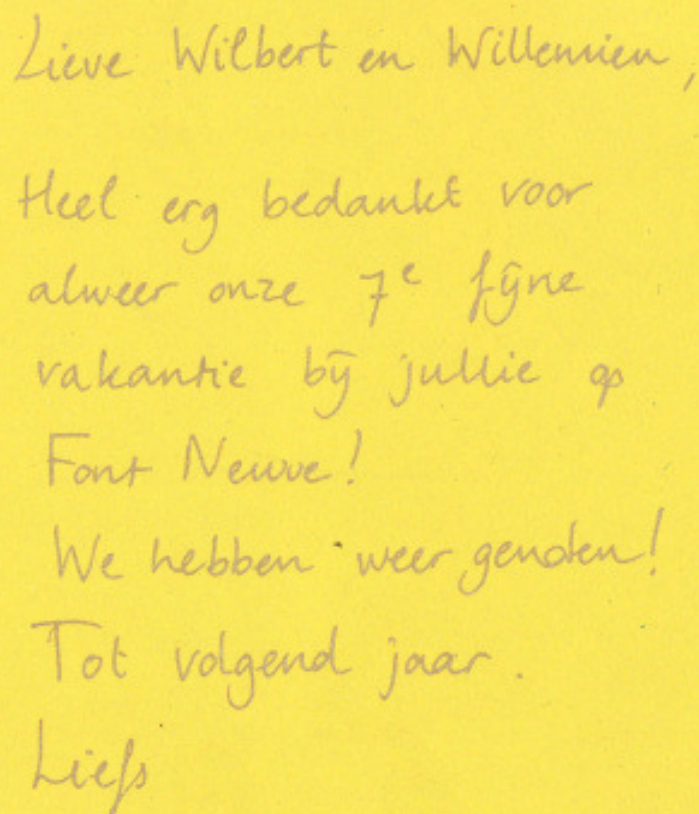 Lieve Wilbert en Willemien,
Heel erg bedankt voor
alweer onze 7e fijne
vakantie bij jullie op
Font Neuve!
We hebben weer genoten!
Tot volgend jaar.
Liefs